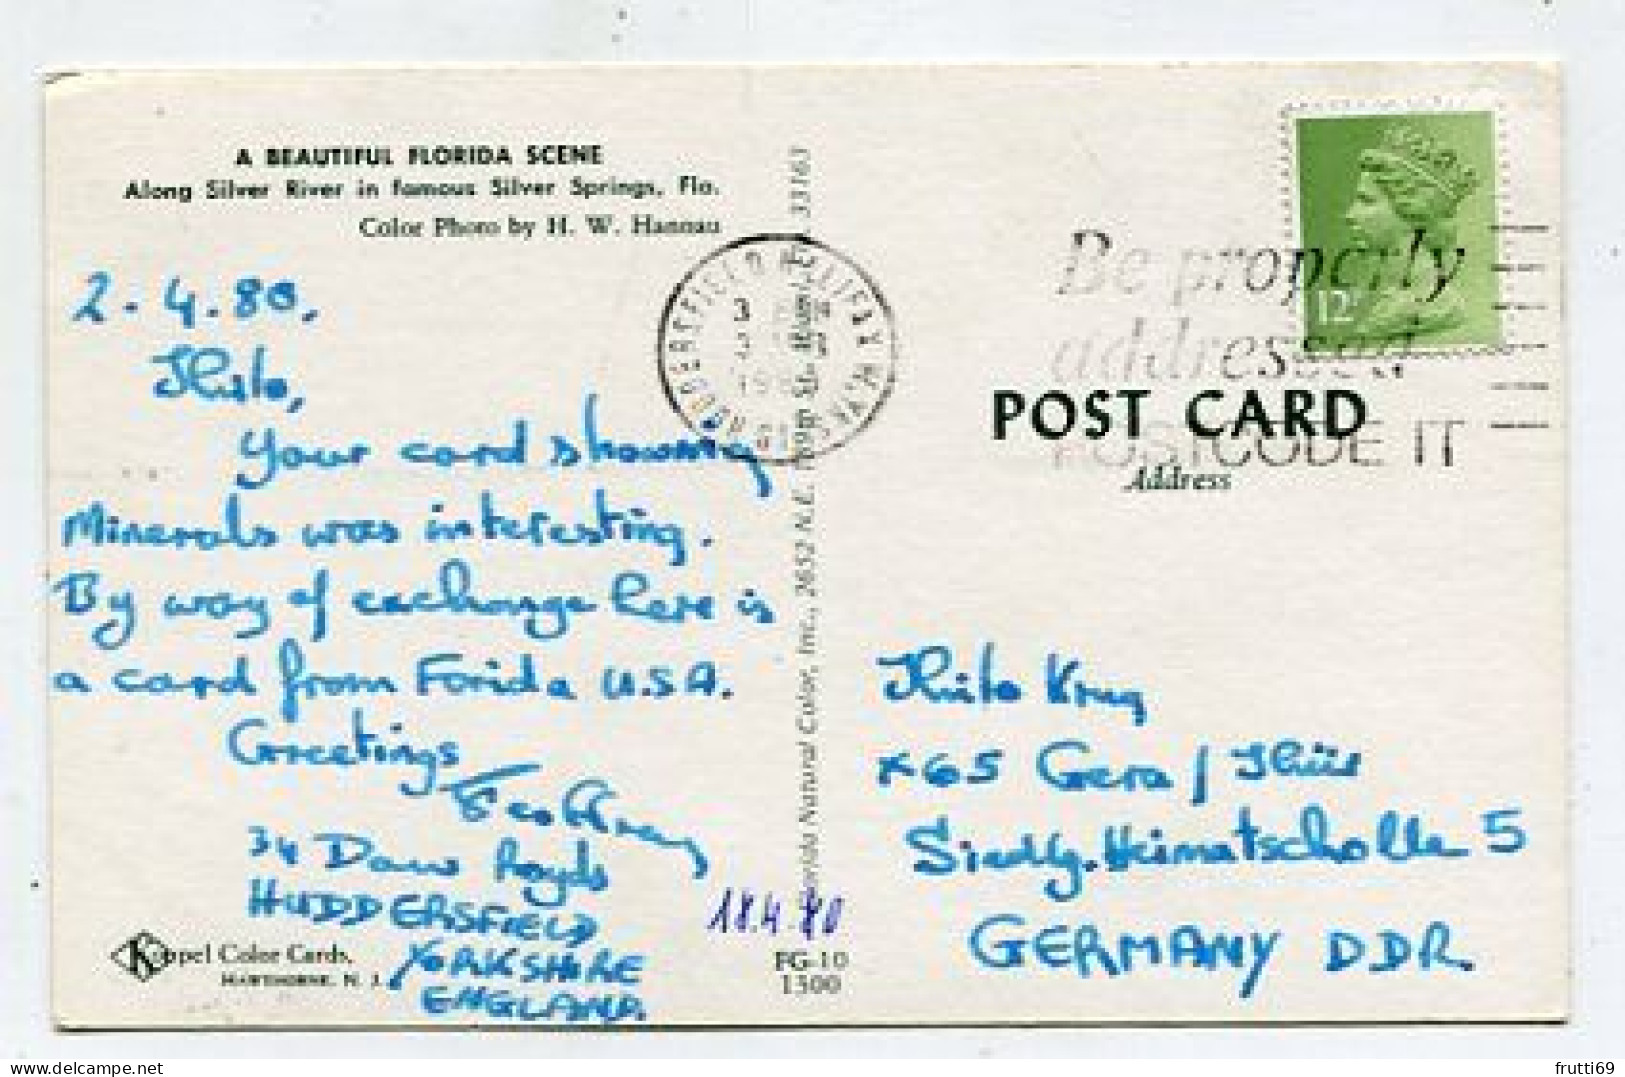 A BEAUTIFUL FLORIDA SCENE
Along Silver River in famous Silver Springs, Fla.
Color Photo by H. W. Hannau
2.4.80.
Thilo,
Your card showing
Minerals was interesting.
By way of exchange here is
a card from Forida U.S.A.
Greetings
34 Royds
HUDDERSFIELD
YORKSHIRE
ENGLAND.
Koppel Color Cards,
HAWTHORNE, N. J.
18.4.80
FG-10
1300
Florida Natural Color, Inc., 2652 N.E. 189th St. Miami, Fla. 33163
HUDDERSFIELD HALIFAX W. YKS
Be properly
addressed
POSTCODE IT
12P
POST CARD
Address
Thilo Krug
x65 Gera / Thür
Siedlg. Heimatscholle 5
GERMANY DDR.
frutti69